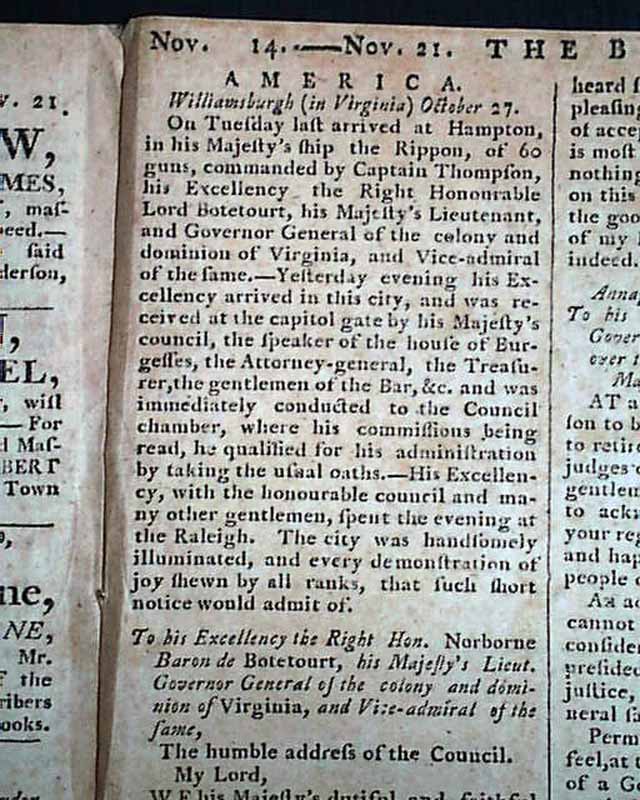 Nov. 14.——Nov. 21. THE B
v. 21.
W,
MES,
, maſ-
eed.—
ſaid
derſon,
,
EL,
, will
— For
d Maſ-
BERT
Town
ne,
NE,
Mr.
f the
ribers
ooks.
AMERICA.
Williamsburgh (in Virginia) October 27.
On Tueſday laſt arrived at Hampton,
in his Majeſty's ſhip the Rippon, of 60
guns, commanded by Captain Thompſon,
his Excellency the Right Honourable
Lord Botetourt, his Majeſty's Lieutenant,
and Governor General of the colony and
dominion of Virginia, and Vice-admiral
of the ſame.—Yeſterday evening his Ex-
cellency arrived in this city, and was re-
ceived at the capitol gate by his Majeſty's
council, the ſpeaker of the houſe of Bur-
geſſes, the Attorney-general, the Treaſu-
rer, the gentlemen of the Bar, &c. and was
immediately conducted to the Council
chamber, where his commiſſions being
read, he qualified for his adminiſtration
by taking the uſual oaths.—His Excellen-
cy, with the honourable council and ma-
ny other gentlemen, ſpent the evening at
the Raleigh. The city was handſomely
illuminated, and every demonſtration of
joy ſhewn by all ranks, that ſuch ſhort
notice would admit of.
To his Excellency the Right Hon. Norborne
Baron de Botetourt, his Majeſty's Lieut.
Governor General of the colony and domi-
nion of Virginia, and Vice-admiral of the
ſame,
The humble addreſs of the Council.
My Lord,
WE his Majeſty's dutiful and faithful
heard ſ
pleaſing
of acce
is moſt
nothing
on this
the goo
of my
indeed.
Anna
To his
Gover
over t
Ma
AT a
ſon to b
to retire
judges o
gentlem
to ackn
your reg
and hap
people
As ac
cannot
conſider
preſided
juſtice,
neral ſa
Perm
feel, at t
of a G